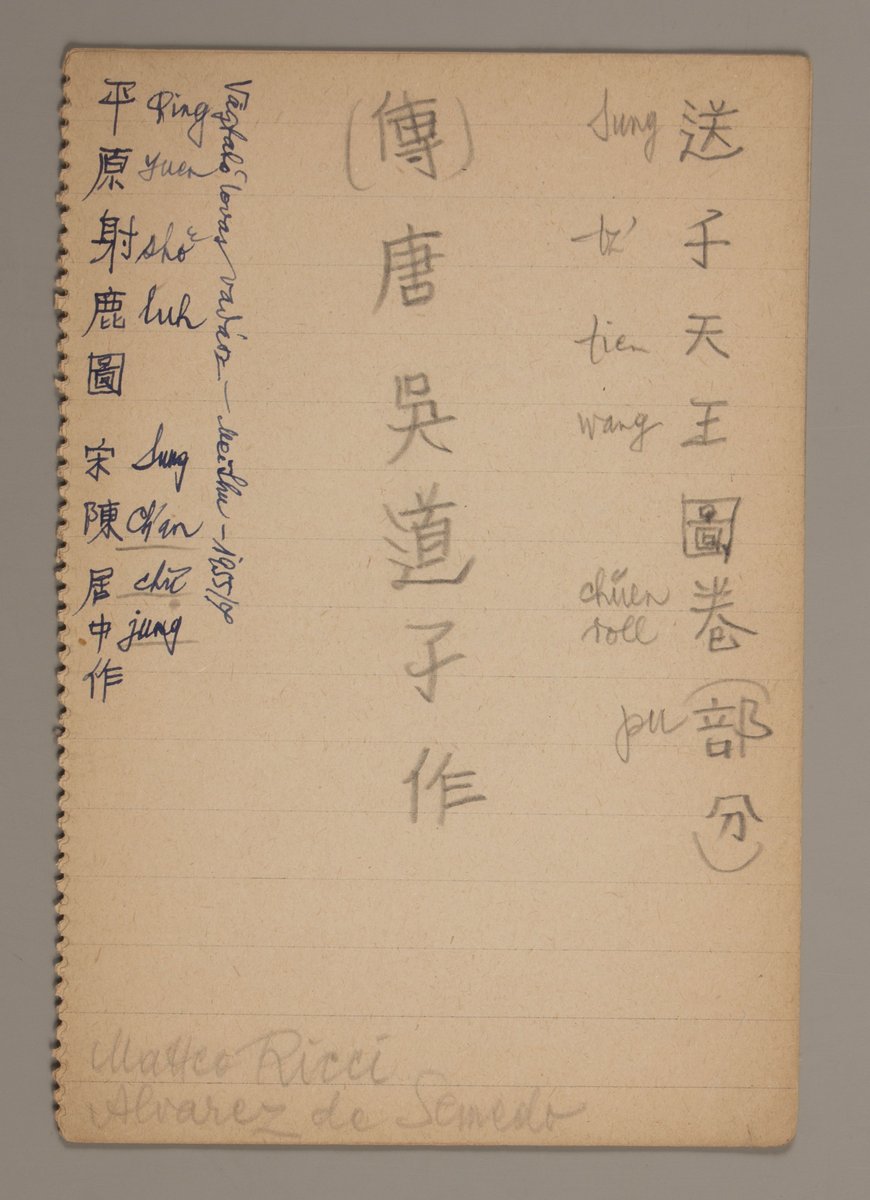 送子天王圖卷(部分)
Sung
tz'
tien
wang
chüen
roll
pu
(傳)唐吳道子作
Vágtató lovas vadász – Mei Shu – 1955/9
平原射鹿圖
Ping
Yuen
shö
luh
宋陳居中作
Sung
Ch'an
chü
jung
Matteo Ricci
Alvarez de Semedo